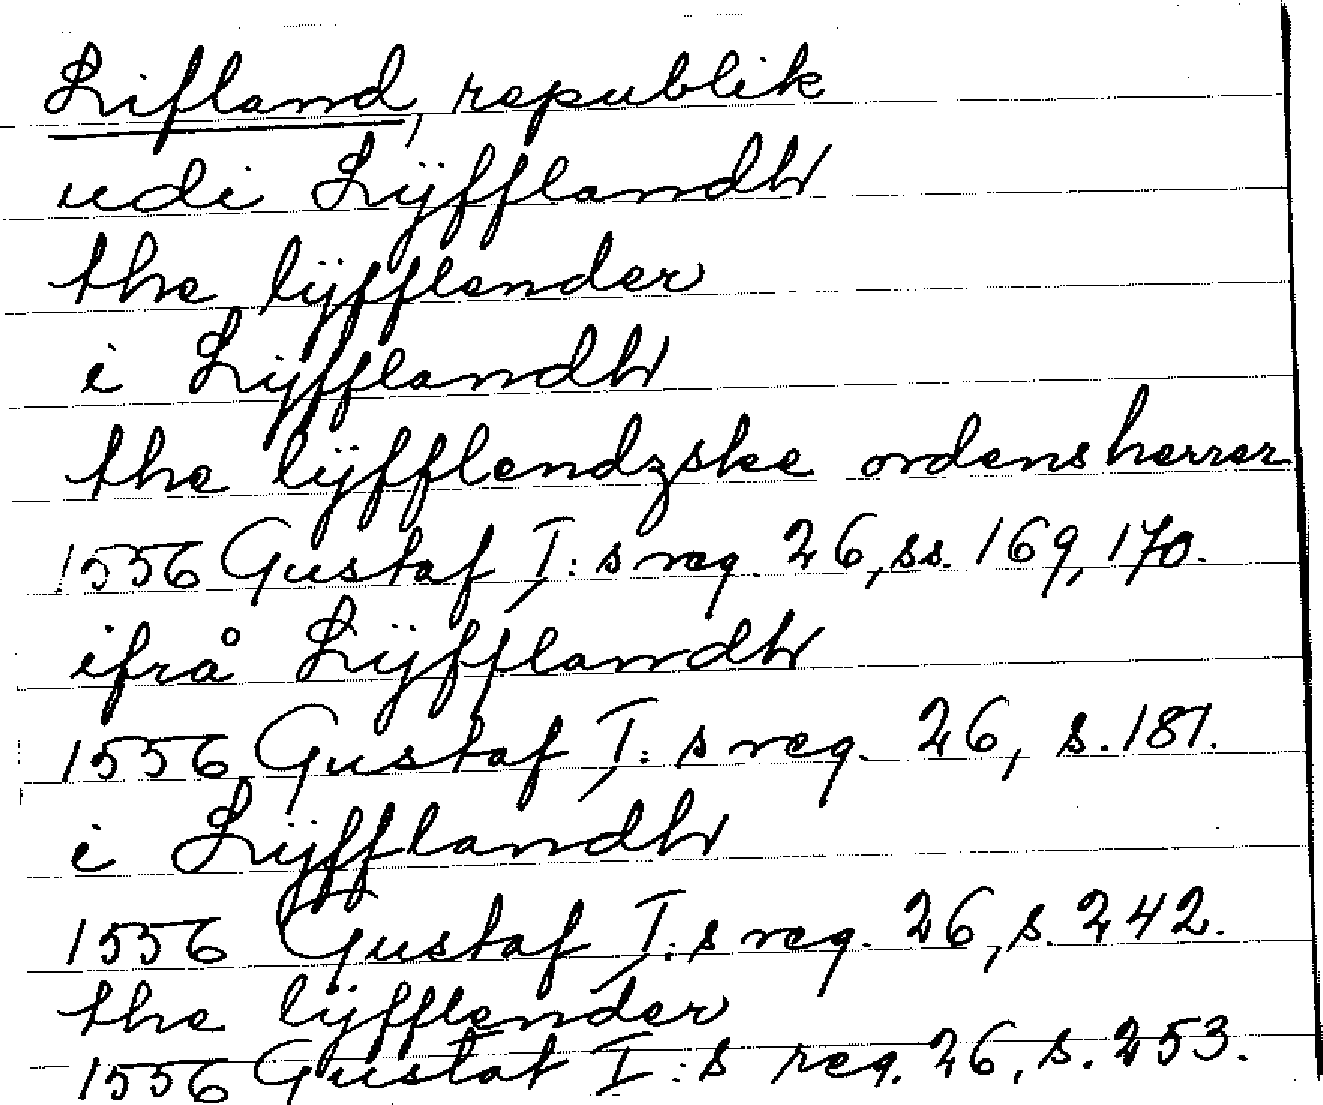 Lifland, republik
udi Lÿfflandh
the lÿfflender
i Lÿfflandh
the lÿfflendzske ordensherrer
1556 Gustaf I:s reg. 26, ss. 169, 170.
ifrå Lÿfflandh
1556 Gustaf I:s reg. 26, s. 181.
i Lÿfflandh
1556 Gustaf I:s reg. 26, s. 242.
the lÿfflender
1556 Gustaf I:s reg. 26, s. 253.